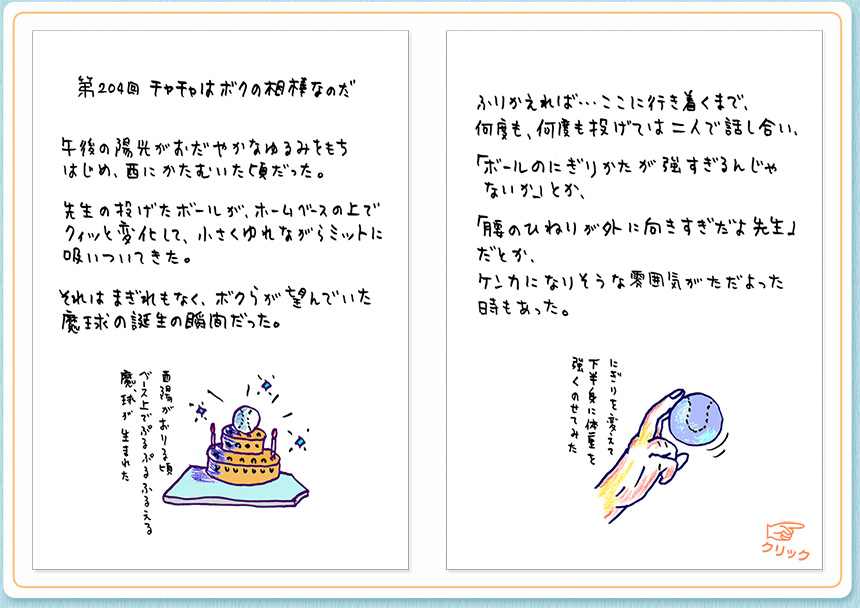 第204回 チャチャはボクの相棒なのだ
午後の陽光がおだやかなゆるみをもち
はじめ、西にかたむいた頃だった。
先生の投げたボールが、ホームベースの上で
クィッと変化して、小さくゆれながらミットに
吸いついてきた。
それはまぎれもなく、ボクらが望んでいた
魔球の誕生の瞬間だった。
酉陽がおりる頃
ベース上でぷるぷるふるえる
魔球が生まれた
ふりかえれば…ここに行き着くまで、
何度も、何度も投げては二人で話し合い、
「ボールのにぎりかたが強すぎるんじゃ
ないか」とか、
「腰のひねりが外に向きすぎだよ先生」
だとか、
ケンカになりそうな雰囲気がただよった
時もあった。
にぎりを変えて
下半身に体重を
強くのせてみた
クリック